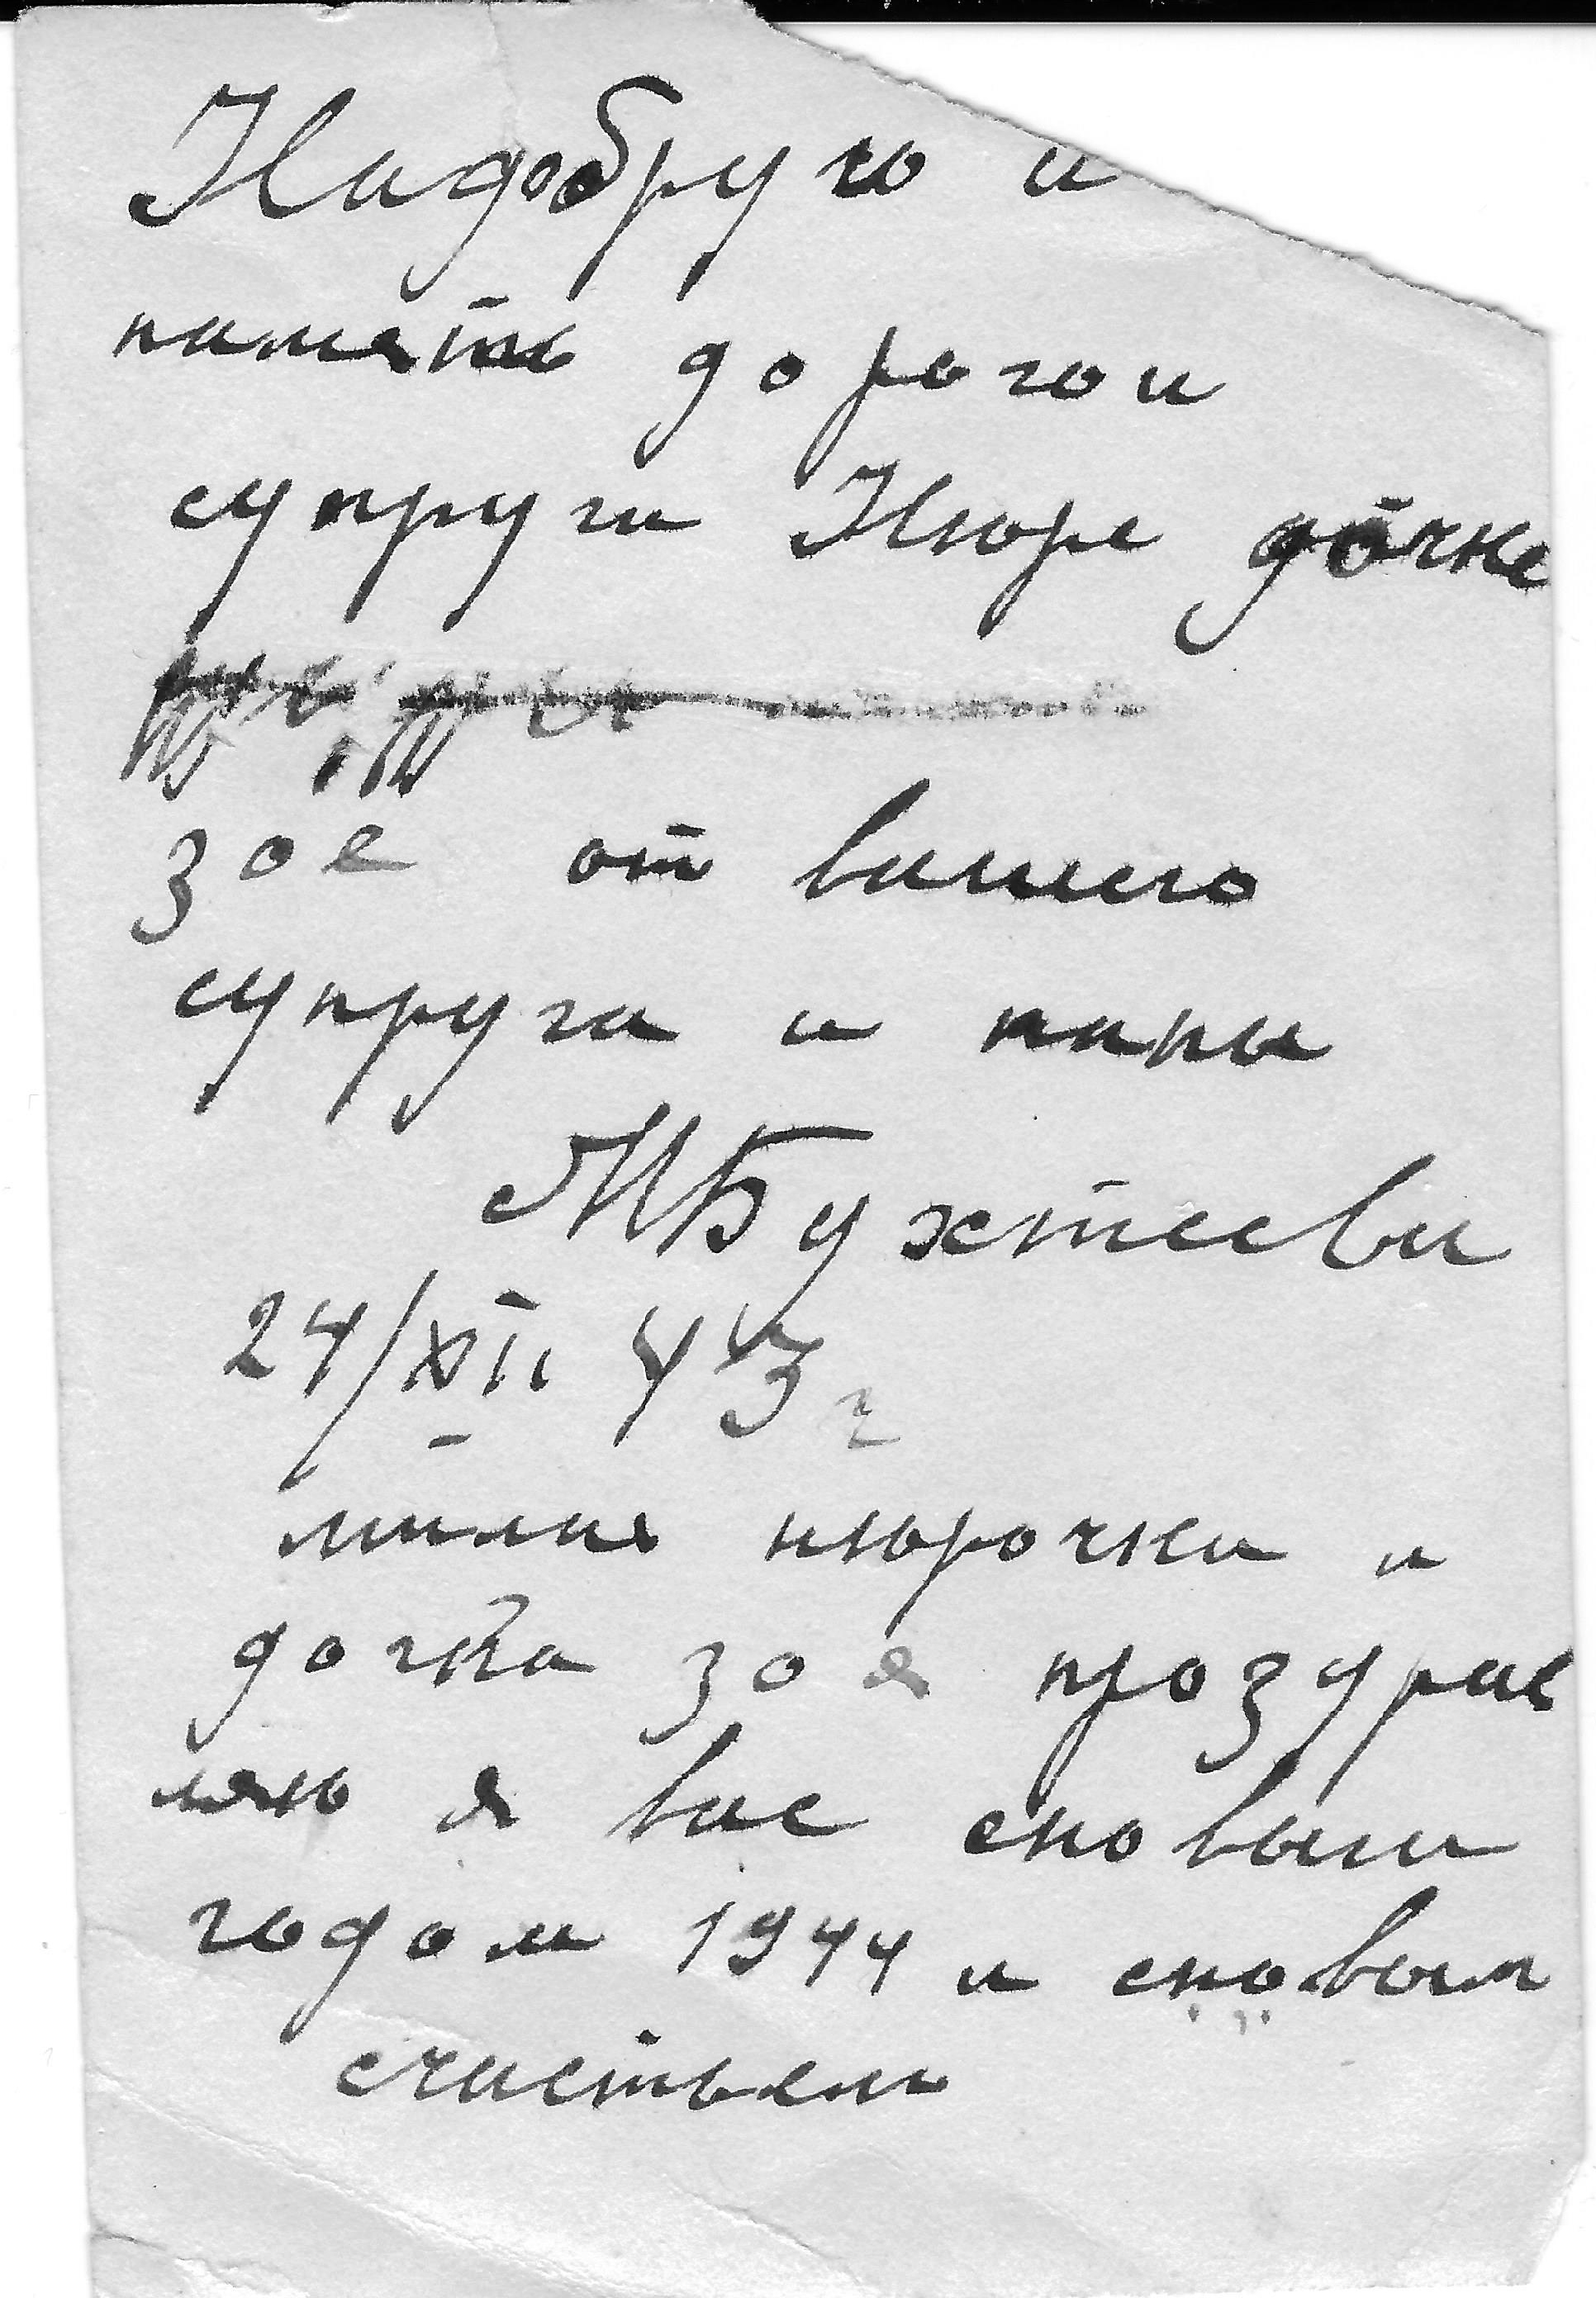 Надобруго и
память дорогои
супруга Нюре дочке
зое от вашего
супруга и папы
М Бухтеева
24/XII 43 г
милая нюрочка и
дочка зоя прозурав
ляю я вас сновым
годом 1944 и сновым
счастьем